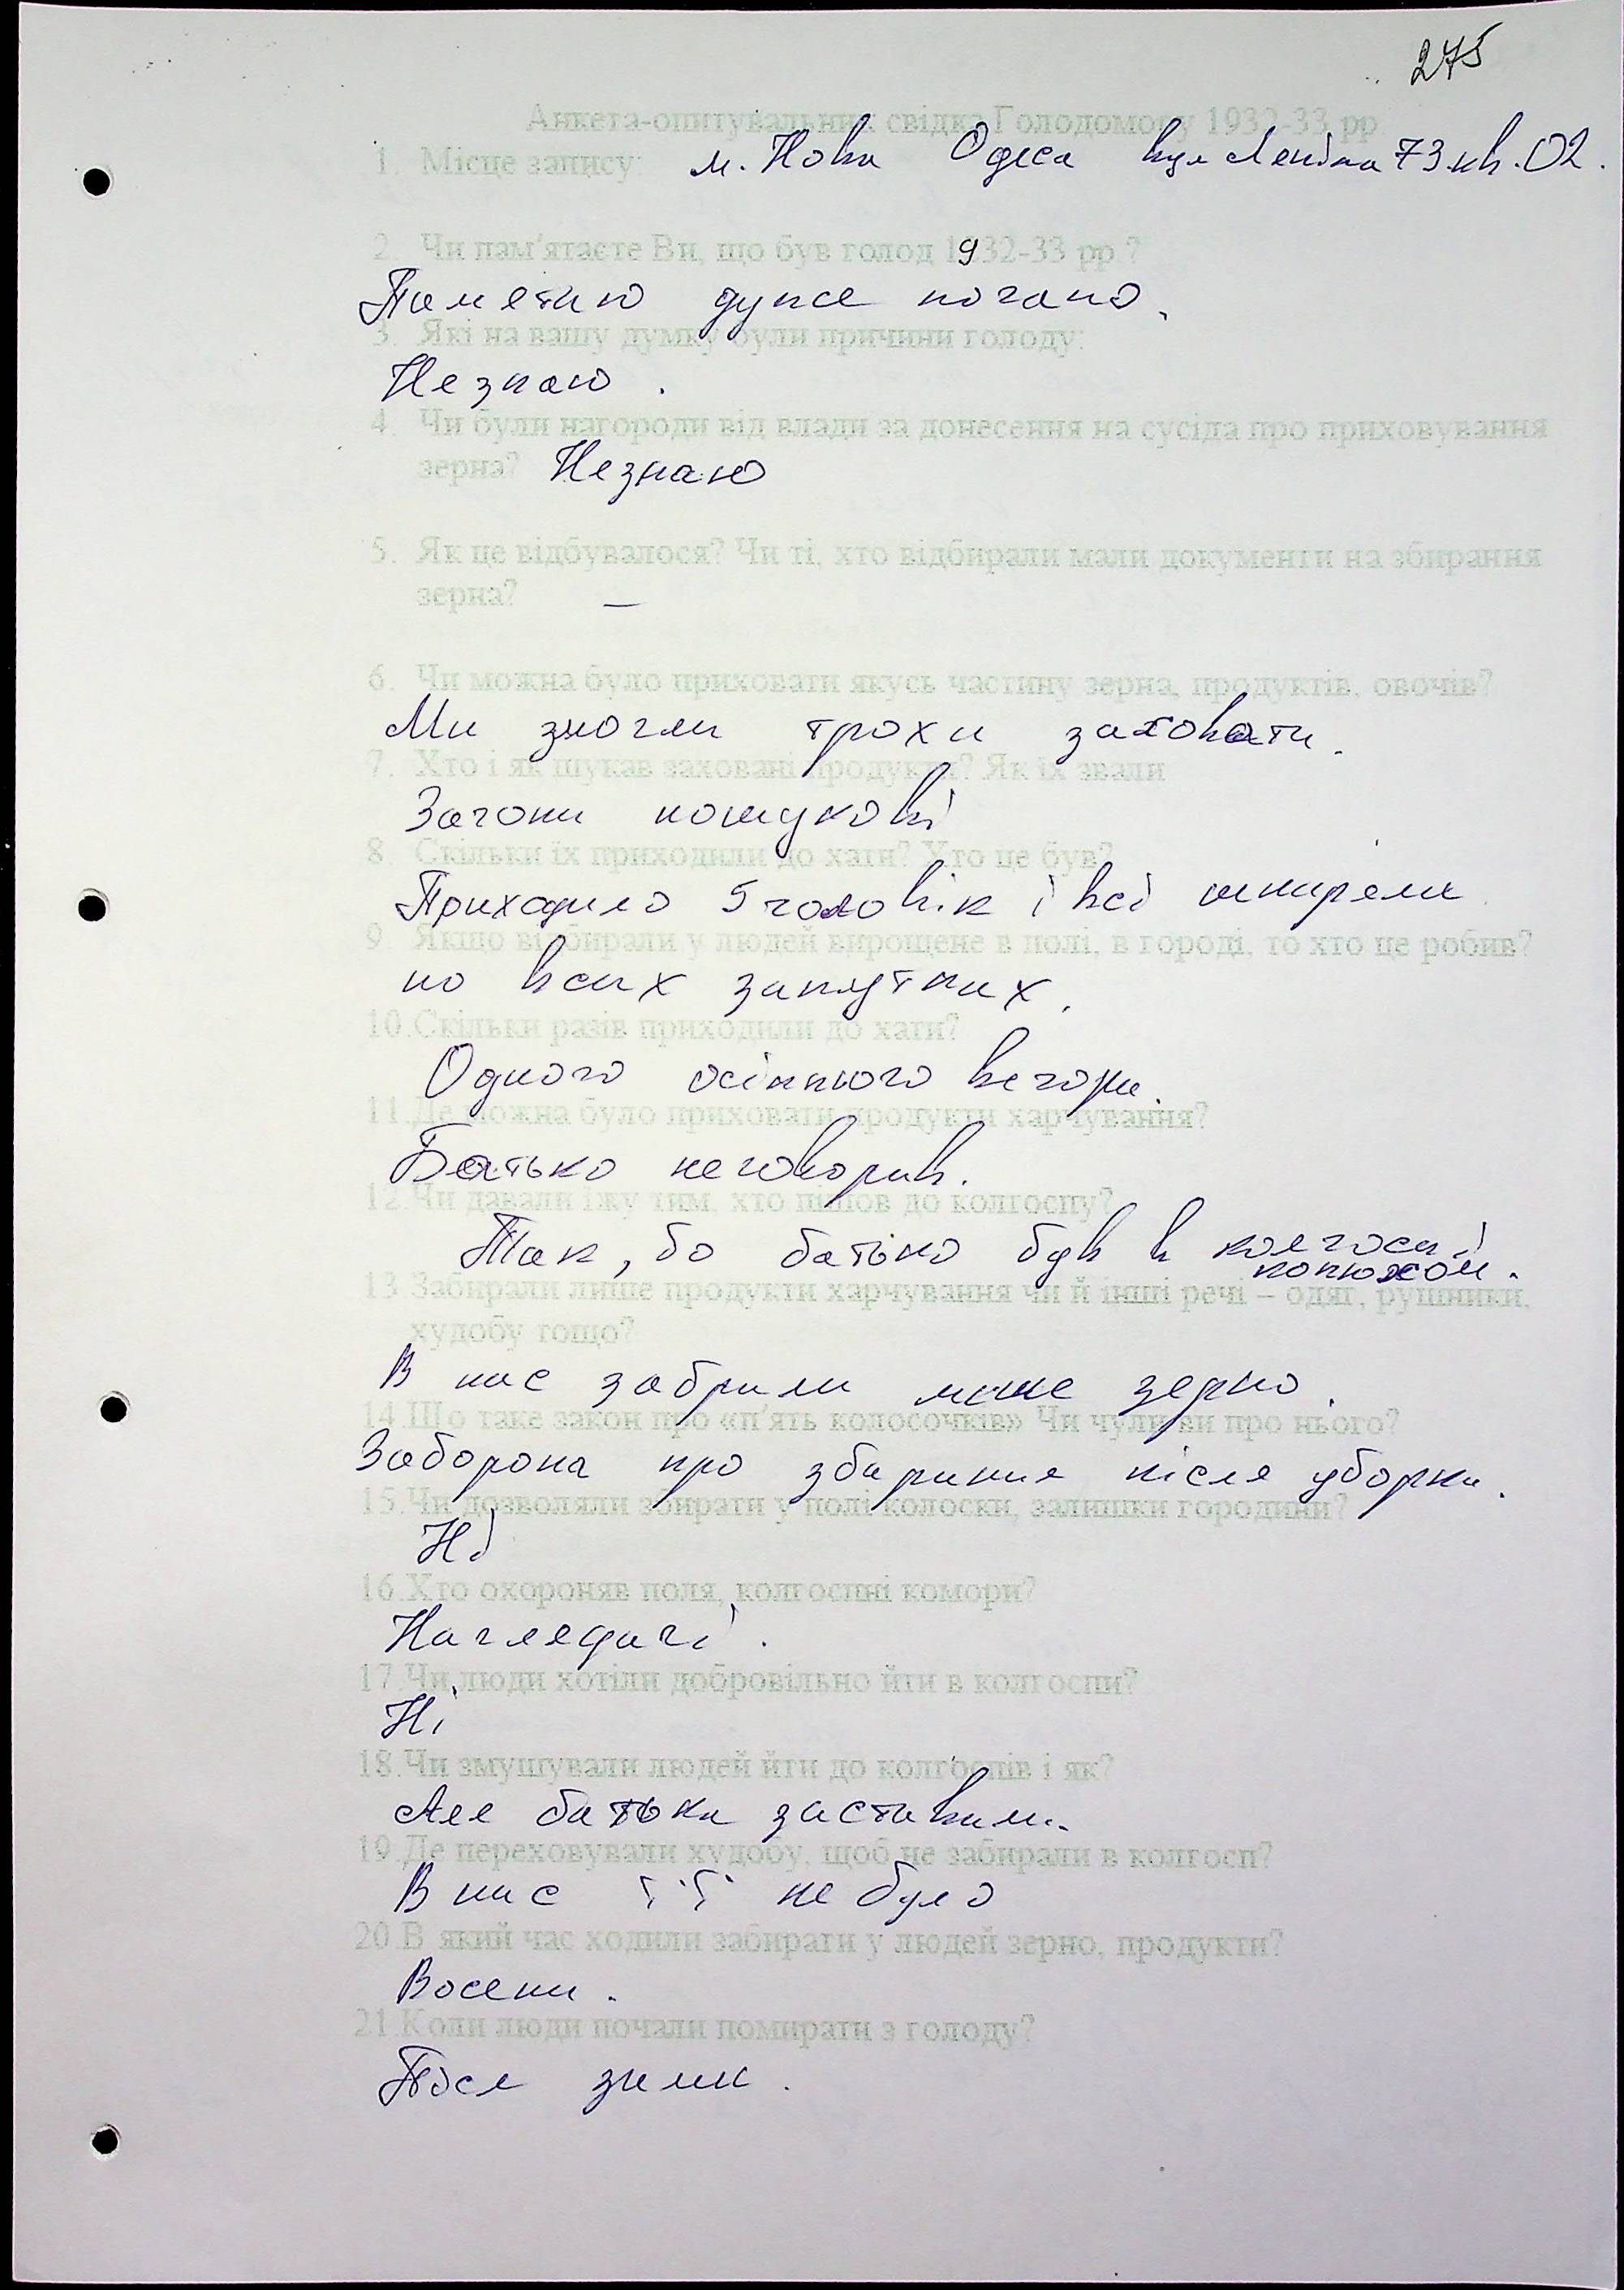 275
Анкета-опитувальник свідка Голодомору 1932-33 рр.
1. Місце запису: м. Нова Одеса вул Леніна 73 кв. 02.
2. Чи пам'ятаєте Ви, що був голод 1932-33 рр.?
Паметаю дуже погано.
3. Які на вашу думку були причини голоду:
Незнаю.
4. Чи були нагороди від влади за донесення на сусіда про приховування
зерна? Незнаю
5. Як це відбувалося? Чи ті, хто відбирали мали документи на збирання
зерна? —
6. Чи можна було приховати якусь частину зерна, продуктів, овочів?
Ми змогли трохи заховати.
7. Хто і як шукав заховані продукти? Як їх звали
Загони пошукові
8. Скільки їх приходили до хати? Хто це був?
Приходило 5 чоловік і всі
9. Якщо відбирали у людей вирощене в полі, в городі, то хто це робив?
по всих закутках.
10. Скільки разів приходили до хати?
Одного осіннього вечора.
11. Де можна було приховати продукти харчування?
Батько неговорив.
12. Чи давали їжу тим, хто пішов до колгоспу?
Так, бо батько був в колгоспі
конюхом.
13. Забирали лише продукти харчування чи й інші речі – одяг, рушники,
худобу тощо?
В нас забрали лише зерно.
14. Що таке закон про «п'ять колосочків» Чи чули ви про нього?
Заборона про збирання після уборки.
15. Чи дозволяли збирати у полі колоски, залишки городини?
Ні
16. Хто охороняв поля, колгоспні комори?
Наглядачі.
17. Чи люди хотіли добровільно йти в колгоспи?
Ні
18. Чи змушували людей йти до колгоспів і як?
Але батька заставили.
19. Де переховували худобу, щоб не забирали в колгосп?
В нас її не було
20. В який час ходили забирати у людей зерно, продукти?
Восени.
21. Коли люди почали помирати з голоду?
Після зими.